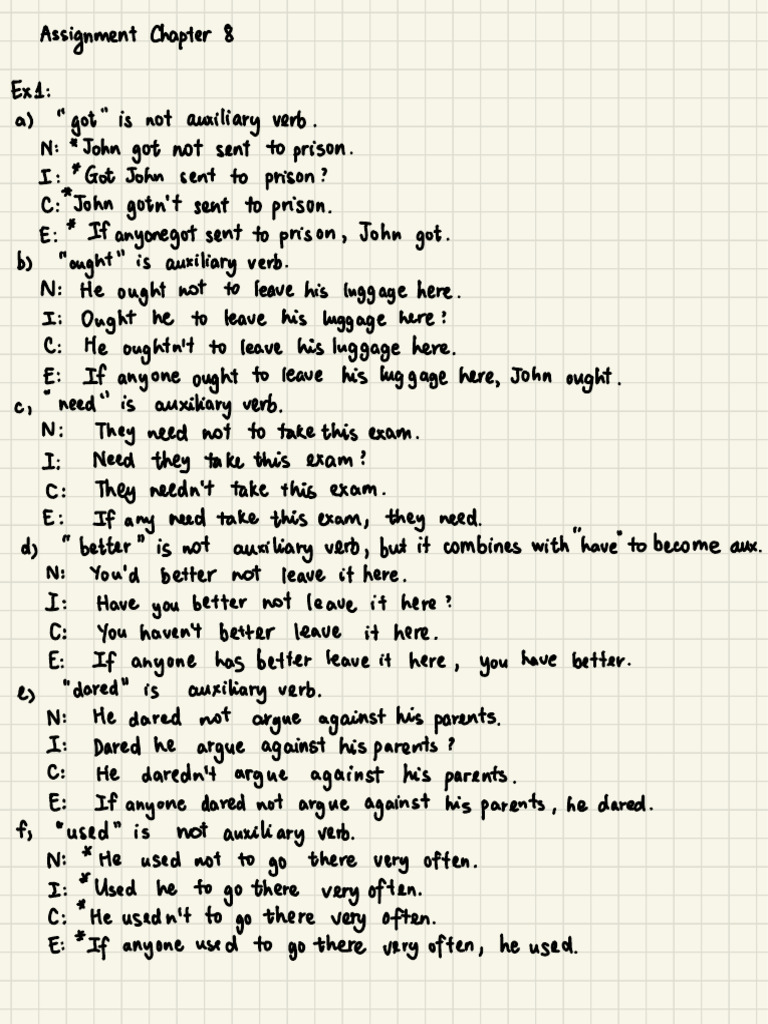 Assignment Chapter 8
Ex1:
a) "got" is not auxiliary verb.
N: *John got not sent to prison.
I: *Got John sent to prison?
C: *John gotn't sent to prison.
E: * If anyonegot sent to prison, John got.
b) "ought" is auxiliary verb.
N: He ought not to leave his luggage here.
I: Ought he to leave his luggage here?
C: He oughtn't to leave his luggage here.
E: If anyone ought to leave his luggage here, John ought.
c, "need" is auxiliary verb.
N: They need not to take this exam.
I: Need they take this exam?
C: They needn't take this exam.
E: If any need take this exam, they need.
d) "better" is not auxiliary verb, but it combines with "have" to become aux.
N: You'd better not leave it here.
I: Have you better not leave it here?
C: You haven't better leave it here.
E: If anyone has better leave it here, you have better.
e) "dared" is auxiliary verb.
N: He dared not argue against his parents.
I: Dared he argue against his parents?
C: He daredn't argue against his parents.
E: If anyone dared not argue against his parents, he dared.
f, "used" is not auxiliary verb.
N: *He used not to go there very often.
I: *Used he to go there very often.
C: *He usedn't to go there very often.
E: *If anyone used to go there very often, he used.